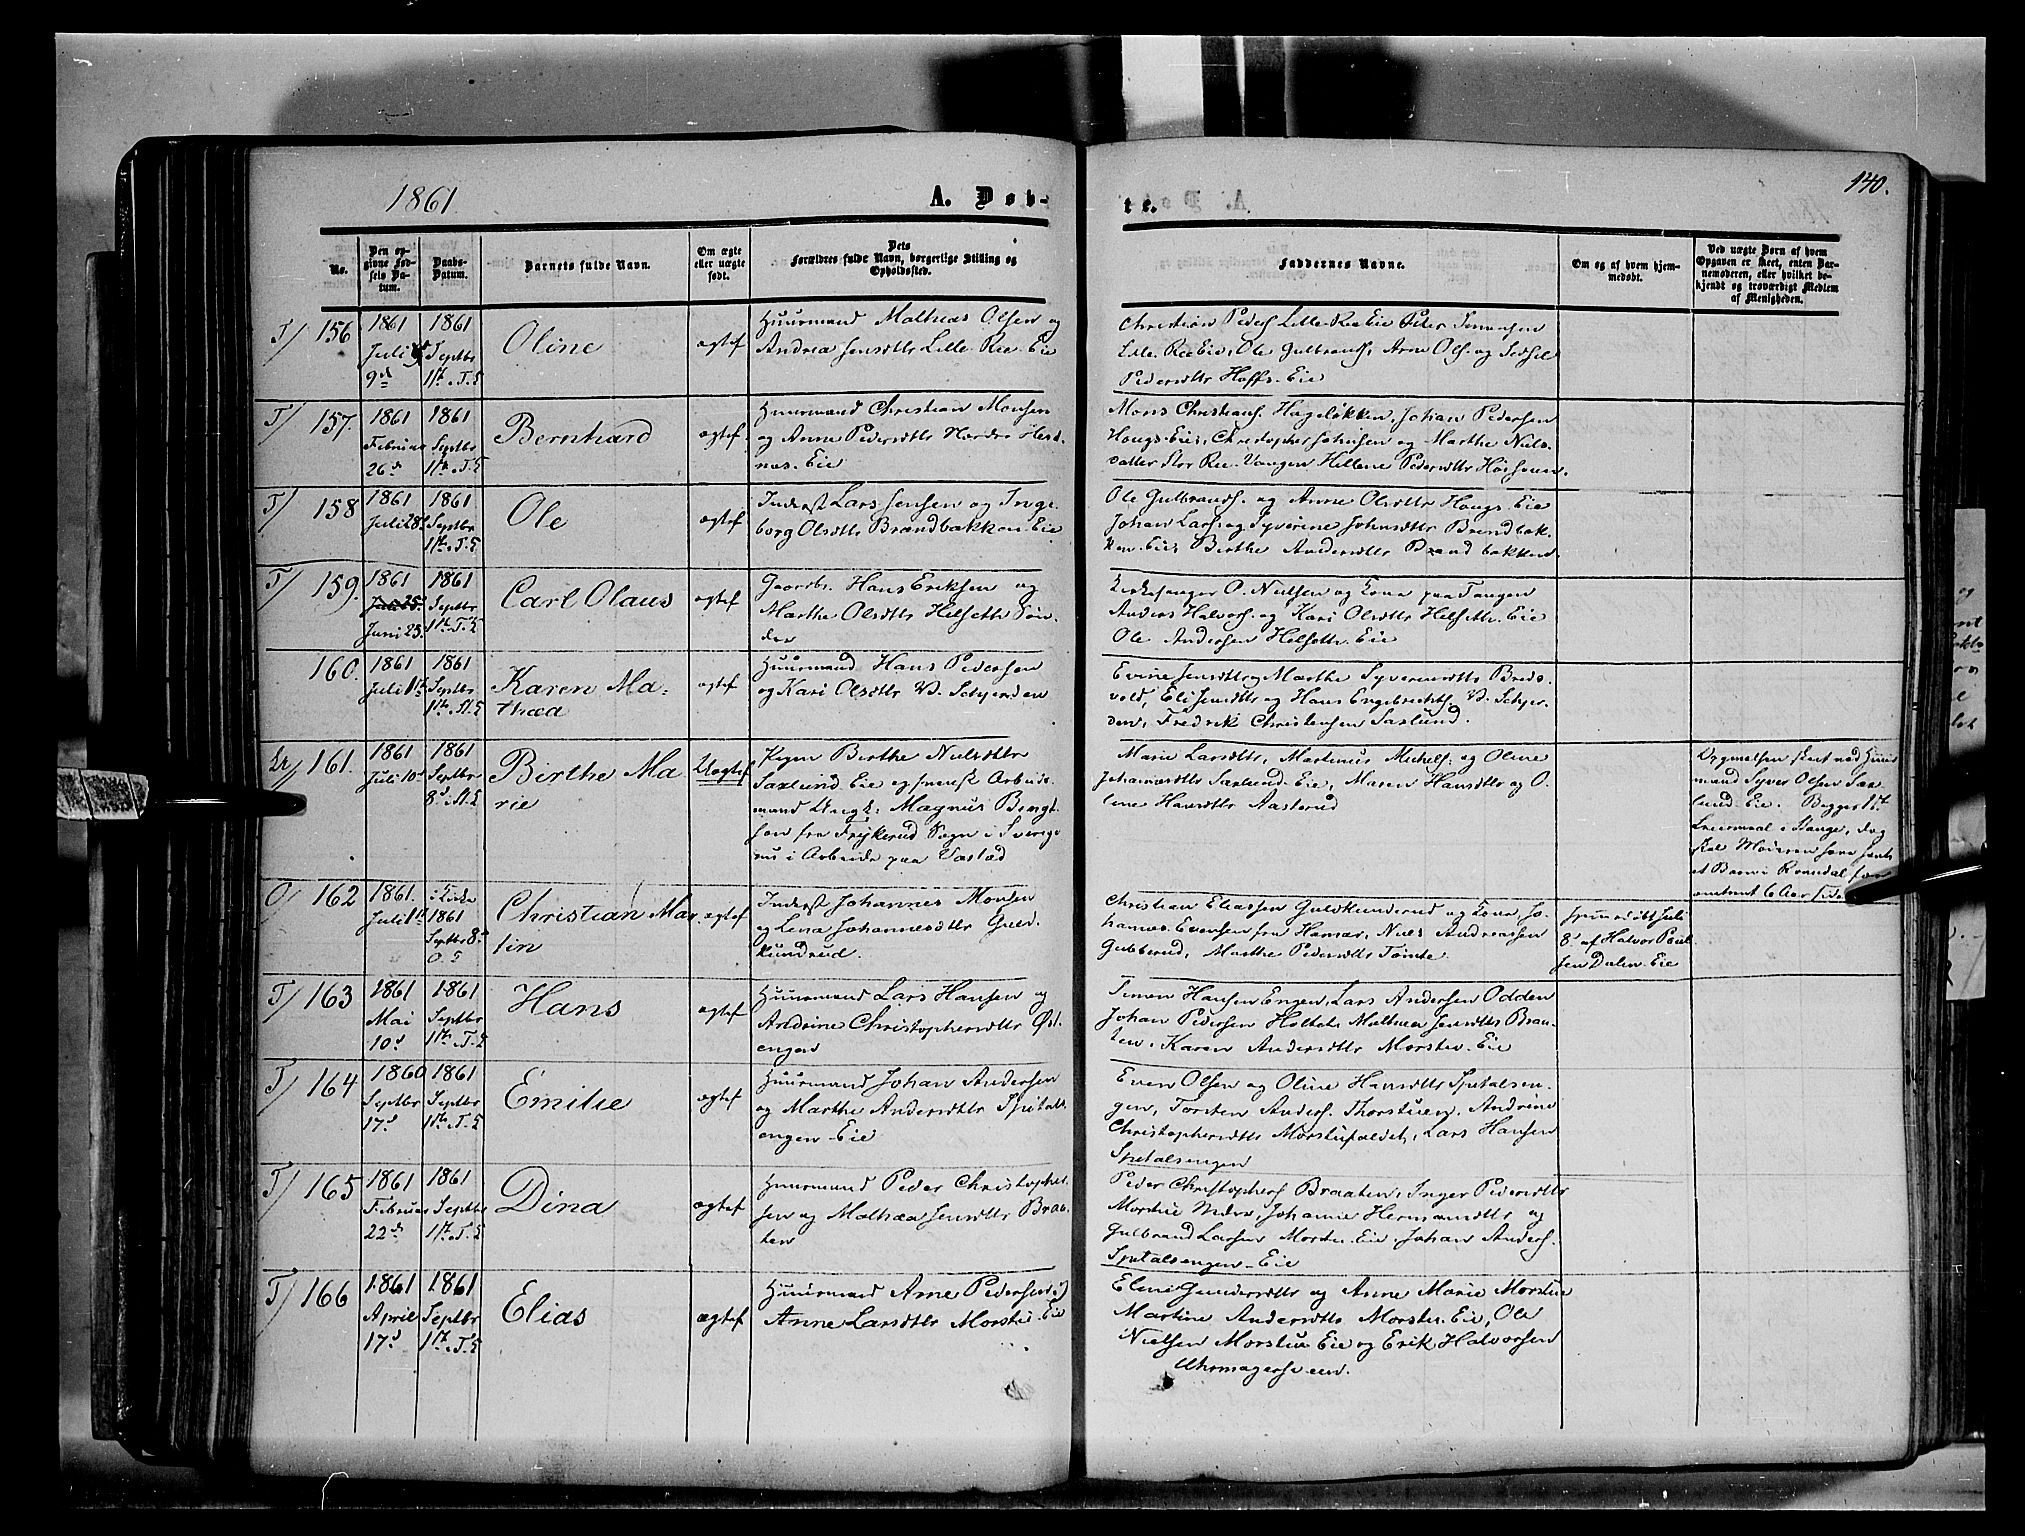 1861
A. Døb-
te.
140.
No.
Den op-
givne Fød-
sels Da-
tum.
Daabs-
Datum.
Barnets fulde Navn.
Om ægte
eller uægte
født.
Dets
Forældres fulde Navn, borgerlige Stilling og
Opholdssted.
Faddernes Navne.
Om og af hvem hjem-
medøbt.
Ved uægte Børn af hvem
Opgaven er skeet, enten Bar-
nemoderen, eller hvilket be-
kjendt og troværdigt Medlem
af Menigheden.
T/ 156
1861
Juli
9de
1861
Septbr
1ste T. K
Oline
ægtef
Huusmand Mathias Olsen og
Andrea Jensdttr Lille Ree Eie
Christian Peders. Lille-Ree Eie Peter Simensen
Lille Ree Eie, Ole Gulbrands., Arne Ols. og Sidsel
Pedersdttr Hoffs-Eie
T/ 157.
1861
Februar
26de
1861
Septbr
1ste T. K
Bernhard
ægtef.
Huusmand Christian Monsen
og Anne Pedersdttr Nordre
nes-Eie
Mons Christians. Hageløkken, Johan Pedersen
Hougs-Eie, Christopher Johnsen og Marthe Niels-
datter Stor Ree-Vangen Hellene Pedersdttr
T/ 158
1861
Juli 28de
1861
Septbr
1ste T. K
Ole
ægtef
Inderst Lars Jensen og Inge-
borg Olsdttr Brandbakken-Eie
Ole Gulbrands. og Anne Olsdttr Hougs-Eie
Johan Lars. og Syverine Johnsdttr Brendbak-
ken-Eie, Birthe Andersdttr Brandbakken.
T/ 159.
1861
Juni 25.
1861
Septbr
1ste T. K
Carl Olaus
ægtef
Gaardbr. Hans Eriksen og
Marthe Olsdttr Helseth Søn-
dre
Kirkesanger O. Nielsen og Kone paa Tangen
Anders Halvors. og Kari Olsdttr Helseth-Eie
Ole Andersen Helseth-Eie
160.
1861
Juli 1ste
1861
Septbr
1ste St. K
Karen Ma-
thea
ægtef
Huusmand Hans Pedersen
og Kari Olsdttr V. Schjerden
Evine Jensdttr, Marthe Syversdttr Breds-
vold, Eli Jensdttr og Hans Engebrechts. V. Schjer-
den, Fredrik Christensen Saxlund.
161.
1861
Juli 10de
1861
Septbr
8de St. K
Birthe Ma
rie
Uægtef
Pigen Birthe Nielsdttr
Saxlund Eie og svensk Arbeids-
mand Ungk: Magnus Bengt-
son fra Frykerud Sogn i Sverige
nu i Arbeide paa Vaslad
Marie Larsdttr, Martinus Mikels. og Oline
Johannesdttr Saxlund-Eie, Maren Hansdttr og O-
line Hansdttr Aasterud
Opgivelsen skeet ved Huus-
mand Syver Olsen Sax-
lund-Eie. Begges 1ste
Leiermaal i Stange, dog
skal Moderen have havt
et Barn i Romedal for
omtrent 6 Aar siden
O/ 162
1861.
Juli 1ste
i Kirke
1861
Septbr 8de
O. K
Christian Mar-
tin
ægtef
Inderst Johannes Monsen
og Lena Johannesdttr Guld-
kundrud.
Christian Eliassen Guldkunderud og Kone, Jo-
hannes Evensen fra Hamar, Niels Andreassen
Gubberud, Marthe Pedersdttr Tomte.
Hjemmedøbt Juli
8de af Halvor Poul-
sen Dalen-Eie
T/ 163
1861
Mai
10de
1861
Septbr
1ste T. K
Hans
ægtef
Huusmand Lars Hansen og
Andrine Christophersdttr Øst-
engen
Simon Hansen Engen, Lars Andersen Odden
Johan Pedersen Holtet, Mathea Jensdttr Braa-
ten, Karen Andersdttr Morstu-Eie
T/ 164
1860
Septbr
17de
1861
Septbr
1ste T. K
Emilie
ægtef
Huusmand Johan Andersen
og Marthe Andersdttr Spetals-
engen-Eie
Even Olsen og Oline Hansdttr Spetalsen-
gen, Torsten Anders. Thorstuen, Andrine
Christophersdttr Morstufaldet, Lars Hansen
Spetalsengen
T/ 165
1861
Februar
22de
1861
Septbr
1ste T. K
Dina
ægtef
Huusmand Peder Christopher-
sen og Mathea Jensdttr Braa-
ten
Peder Christophers. Braaten, Inger Pedersdttr
Morstu Nedre, Johanne Hermansdttr og
Gulbrand Larsen Morstu-Eie, Johan Anders.
Spetalsengen-Eie
T/ 166
1861
April
17de
1861
Septbr
1ste T. K
Elias
ægtef
Huusmand Arne Pedersen og
Anne Larsdttr Morstu-Eie
Eline Gundersdttr og Anne Marie Morstue
Martine Andersdttr Morstu-Eie, Ole
Nielsen Morstue Eie og Erik Halvorsen
Uhrmagerstuen.